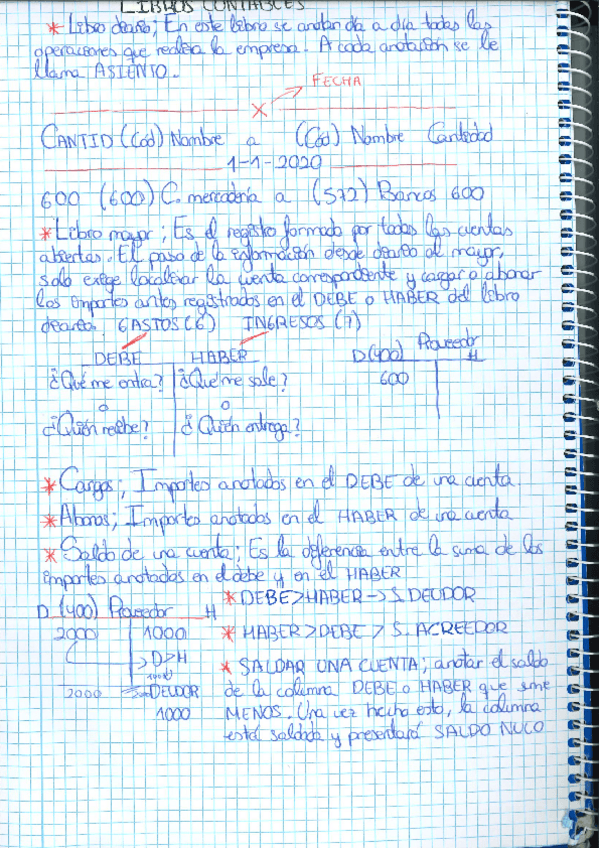 LIBROS CONTABLES
* Libro diario; En este libro se anotan día a día todas las
operaciones que realiza la empresa. A cada anotación se le
llama ASIENTO.
FECHA
X
CANTID (Cód) Nombre a (Cód) Nombre Cantidad
1-1-2020
600 (600) C. mercadería a (572) Bancos 600
* Libro mayor; Es el registro formado por todas las cuentas
abiertas. El paso de la información desde diario al mayor,
solo exige localizar la cuenta correspondiente y cargar o abonar
los importes antes registrados en el DEBE o HABER del libro
diario. GASTOS (6) INGRESOS (7)
DEBE HABER D (400) Proveedor H
¿Qué me entra? ¿Qué me sale? 600
o o
¿Quién recibe? ¿Quién entrega?
* Cargos; Importes anotados en el DEBE de una cuenta.
* Abonos; Importes anotados en el HABER de una cuenta
* Saldo de una cuenta; Es la diferencia entre la suma de los
importes anotados en el debe y en el HABER
D (400) Proveedor H
2000 1000
D>H
1000
2000 DEUDOR
1000
* DEBE>HABER -> S. DEUDOR
* HABER>DEBE > S. ACREEDOR
* SALDAR UNA CUENTA; anotar el saldo
de la columna DEBE o HABER que sume
MENOS. Una vez hecho esto, la columna
está saldada y presentará SALDO NULO